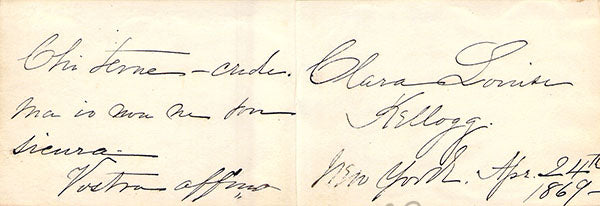 Chi teme – crede.
ma io non ne son
sicura –
Vostra affma
Clara Louise
Kellogg.
New York. Apr. 24th
1869 –